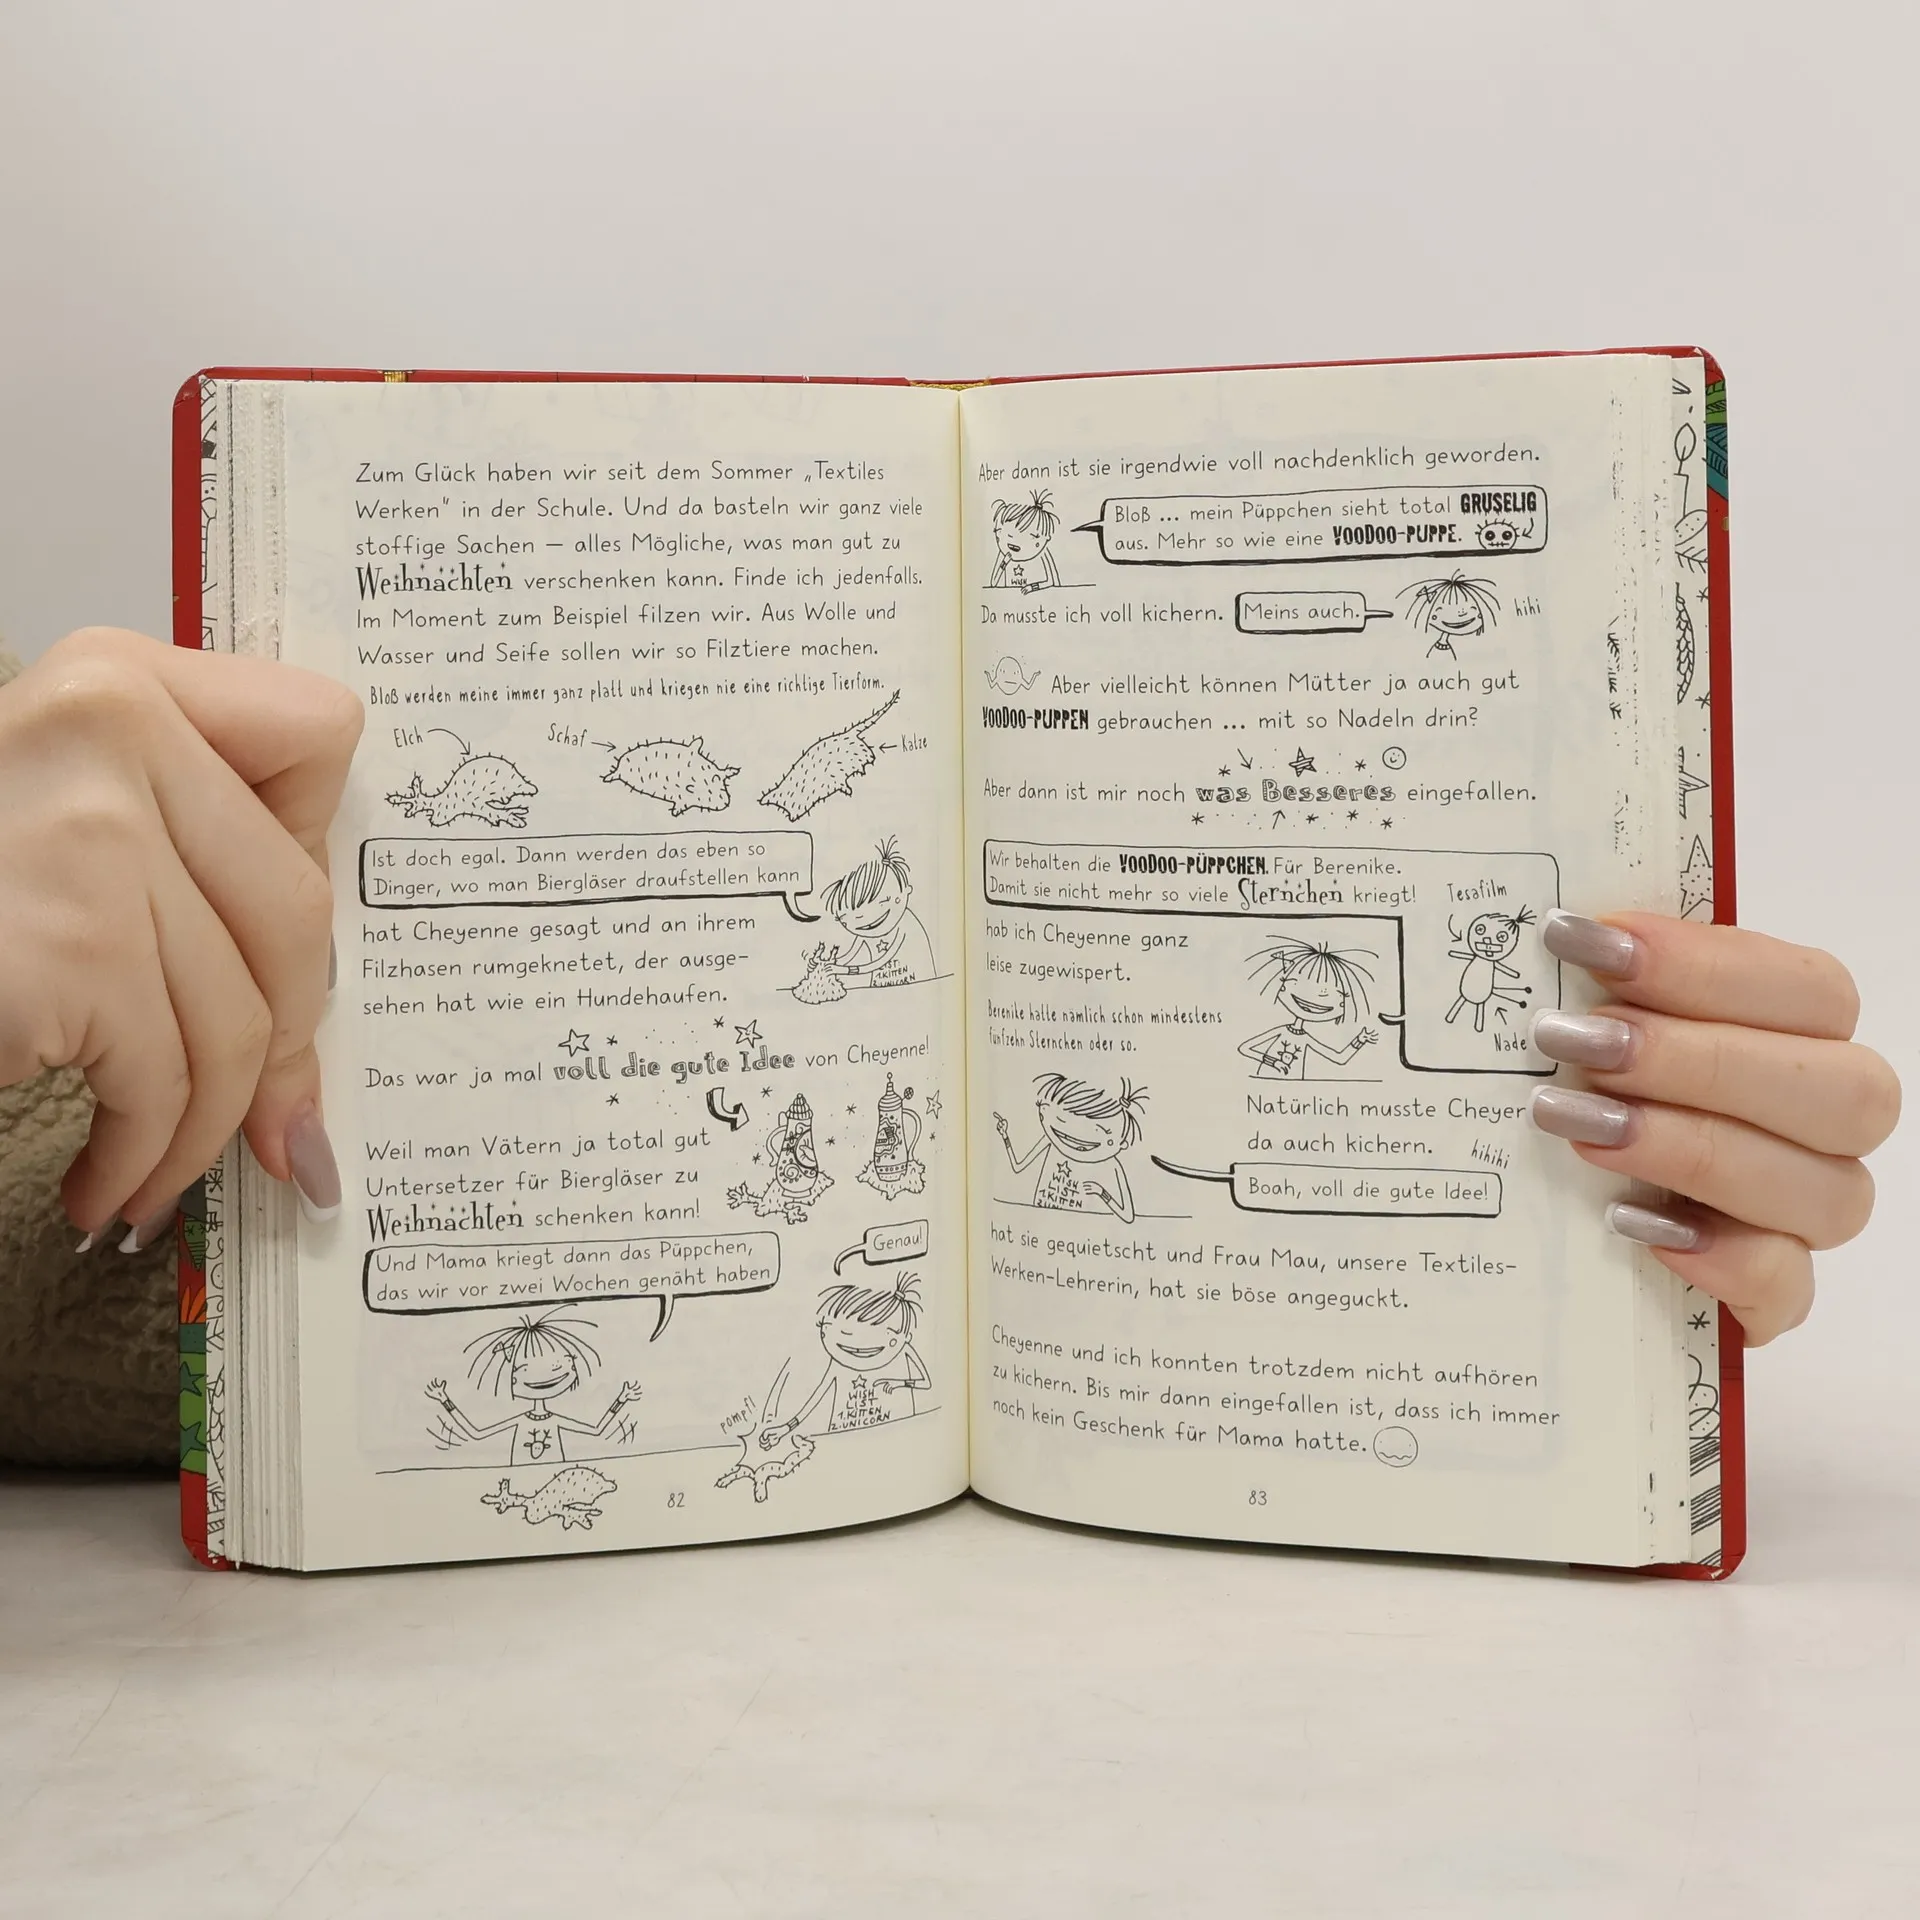 Zum Glück haben wir seit dem Sommer „Textiles
Werken“ in der Schule. Und da basteln wir ganz viele
stoffige Sachen – alles Mögliche, was man gut zu
Weihnachten verschenken kann. Finde ich jedenfalls.
Im Moment zum Beispiel filzen wir. Aus Wolle und
Wasser und Seife sollen wir so Filztiere machen.
Bloß werden meine immer ganz platt und kriegen nie eine richtige Tierform.
Elch
Schaf
Katze
Ist doch egal. Dann werden das eben so
Dinger, wo man Biergläser draufstellen kann
hat Cheyenne gesagt und an ihrem
Filzhasen rumgeknetet, der ausge-
sehen hat wie ein Hundehaufen.
LIST
1.KITTEN
2.UNICORN
Das war ja mal voll die gute Idee von Cheyenne!
Weil man Vätern ja total gut
Untersetzer für Biergläser zu
Weihnachten schenken kann!
Und Mama kriegt dann das Püppchen,
das wir vor zwei Wochen genäht haben
Genau!
pompf!
WISH
LIST
1.KITTEN
2.UNICORN
82
Aber dann ist sie irgendwie voll nachdenklich geworden.
Bloß ... mein Püppchen sieht total GRUSELIG
aus. Mehr so wie eine VOODOO-PUPPE.
WISH
Da musste ich voll kichern.
Meins auch.
hihi
Aber vielleicht können Mütter ja auch gut
VOODOO-PUPPEN gebrauchen ... mit so Nadeln drin?
Aber dann ist mir noch was Besseres eingefallen.
Wir behalten die VOODOO-PÜPPCHEN. Für Berenike.
Damit sie nicht mehr so viele Sternchen kriegt!
Tesafilm
Nade
hab ich Cheyenne ganz
leise zugewispert.
Berenike hatte nämlich schon mindestens
fünfzehn Sternchen oder so.
Natürlich musste Cheyer
da auch kichern.
hihihi
Boah, voll die gute Idee!
WISH
LIST
1.KITTEN
hat sie gequietscht und Frau Mau, unsere Textiles-
Werken-Lehrerin, hat sie böse angeguckt.
Cheyenne und ich konnten trotzdem nicht aufhören
zu kichern. Bis mir dann eingefallen ist, dass ich immer
noch kein Geschenk für Mama hatte.
83